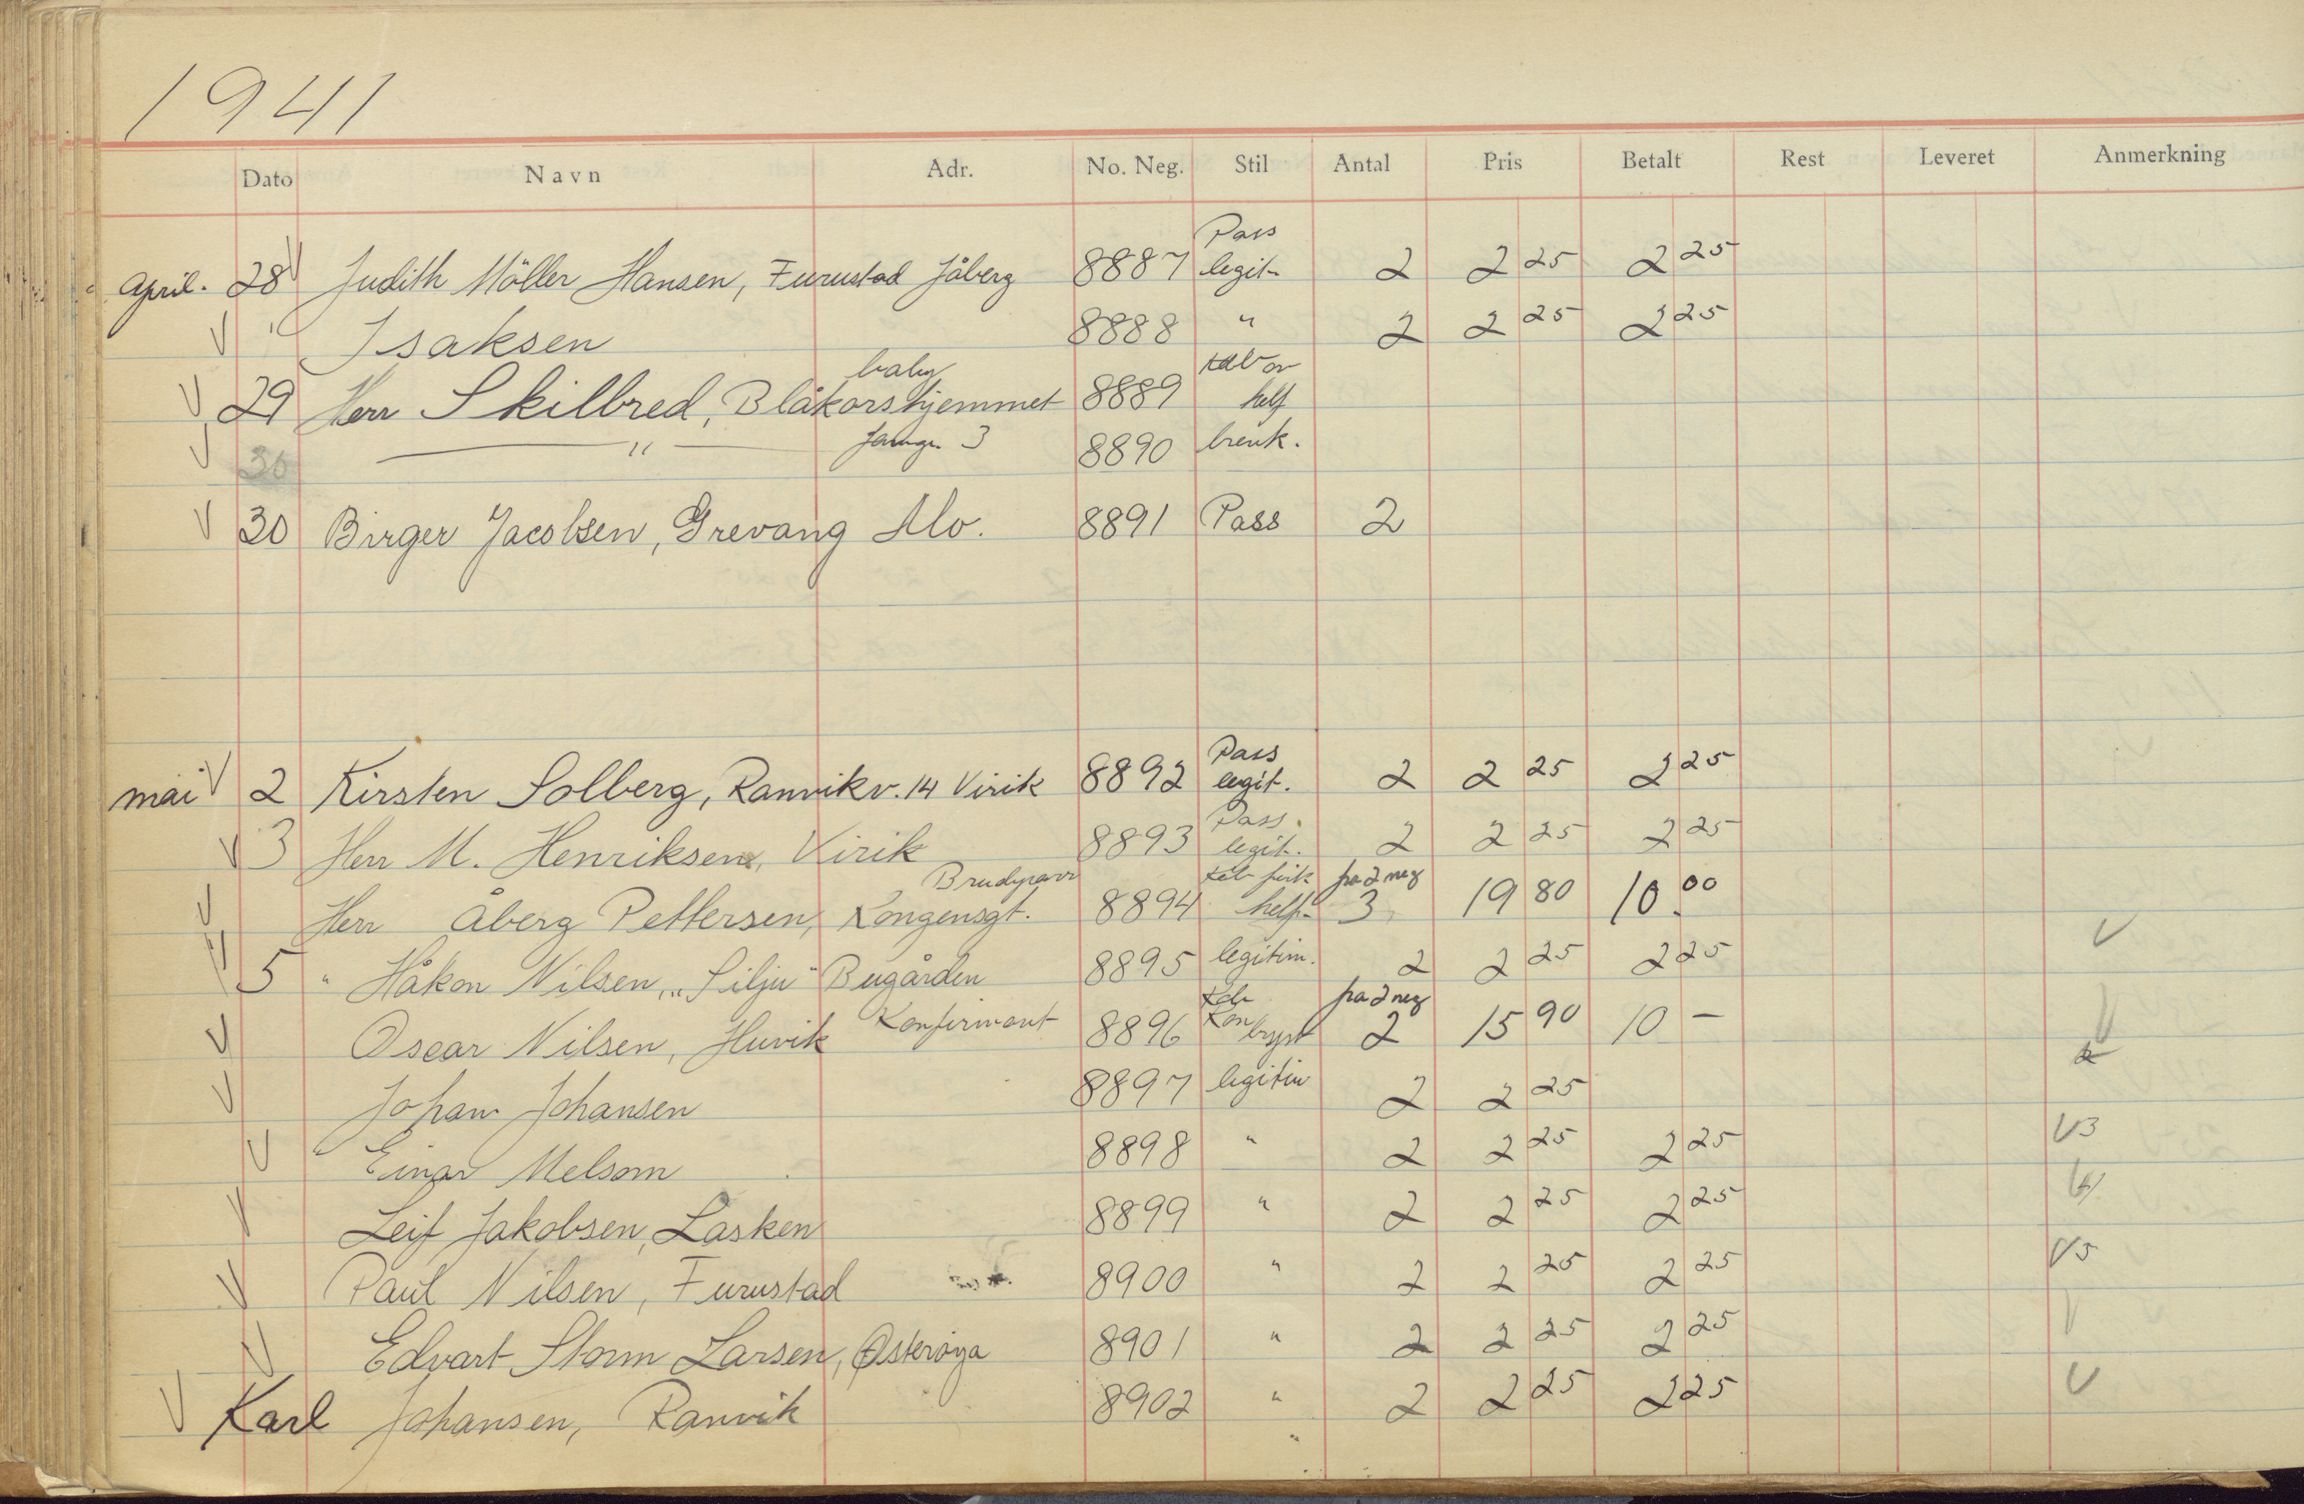 1941
Dato Navn Adr. No. Neg. Stil Antal Pris Betalt Rest Leveret Anmerkning
Pass
April. 28 Judith Möller Hansen, Furustad Jåberg 8887 legit. 2 2 25 2 25
" Isaksen 8888 " 2 2 25 2 25
baby
29 Herr Skilbred, Blåkorshjemmet 8889 helf
30 " 3 8890 brenk.
30 Birger Jacobsen, Grevang Mo. 8891 Pass 2
Pass
mai 2 Kirsten Solberg, Ranvikv. 14 Virik 8892 legit. 2 2 25 2 25
Pass.
3 Herr M. Henriksen, Virik 8893 legit. 2 2 25 2 25
Brudepar fra 2 neg
Herr Åberg Pettersen, Kongensgt. 8894 helf. 3 19 80 10.00
5 " Håkon Nilsen, "Silju" Bugården 8895 legitim. 2 2 25 2 25
Konfirmant fra 2 neg
Oscar Nilsen, Huvik 8896 bryst 2 15 90 10 —
Johan Johansen 8897 legitim 2 2 25
Einar Melsom 8898 " 2 2 25 2 25 3
Leif Jakobsen, Lasken 8899 " 2 2 25 2 25
Paul Nilsen, Furustad 8900 " 2 2 25 2 25 5
Edvart Storm Larsen, Østerøya 8901 " 2 2 25 2 25
Karl Johansen, Ranvik 8902 " 2 2 25 2 25